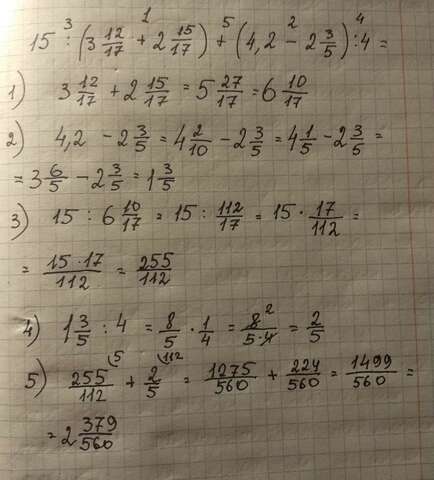 3 1 5 2 4
15 : (3 12/17 + 2 15/17) + (4,2 - 2 3/5) : 4 =
1) 3 12/17 + 2 15/17 = 5 27/17 = 6 10/17
2) 4,2 - 2 3/5 = 4 2/10 - 2 3/5 = 4 1/5 - 2 3/5 =
= 3 6/5 - 2 3/5 = 1 3/5
3) 15 : 6 10/17 = 15 : 112/17 = 15 · 17/112 =
= 15·17/112 = 255/112
4) 1 3/5 : 4 = 8/5 · 1/4 = 8 2/5·4 = 2/5
5) 255/112 (5 + 2/5 (112 = 1275/560 + 224/560 = 1499/560 =
= 2 379/560